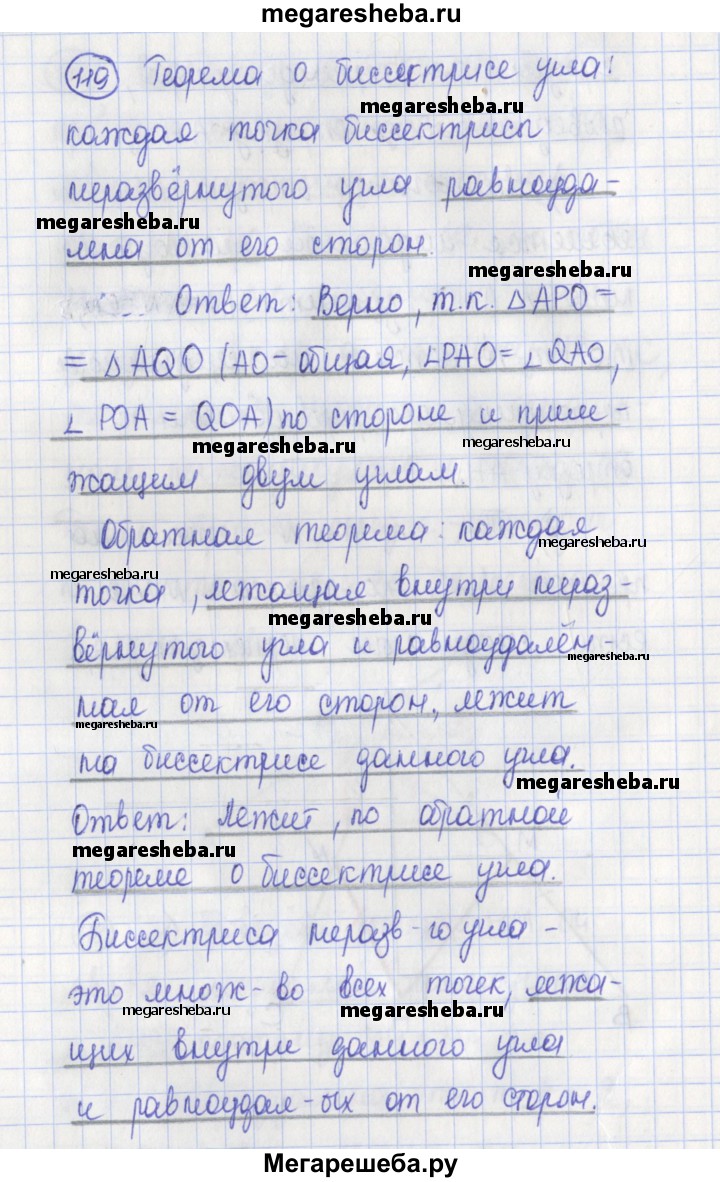 megaresheba.ru
119 Теорема о биссектрисе угла:
megaresheba.ru
каждая точка биссектрисы
неразвёрнутого угла равноуда-
megaresheba.ru
лена от его сторон.
megaresheba.ru
Ответ: Верно, т.к. △APO =
= △AQO (AO - общая, ∠PAO = ∠QAO,
∠POA = QOA) по стороне и приле-
megaresheba.ru megaresheba.ru
жащим двум углам.
Обратная теорема: каждая
megaresheba.ru
megaresheba.ru
точка, лежащая внутри нераз-
вёрнутого угла и равноудалён-
megaresheba.ru
ная от его сторон, лежит
megaresheba.ru
на биссектрисе данного угла.
megaresheba.ru
Ответ: Лежит, по обратной
megaresheba.ru
теореме о биссектрисе угла.
Биссектриса неразв-го угла -
это множ-во всех точек, лежа-
megaresheba.ru megaresheba.ru
щих внутри данного угла
и равноудал-ых от его сторон.
Мегарешеба.ру